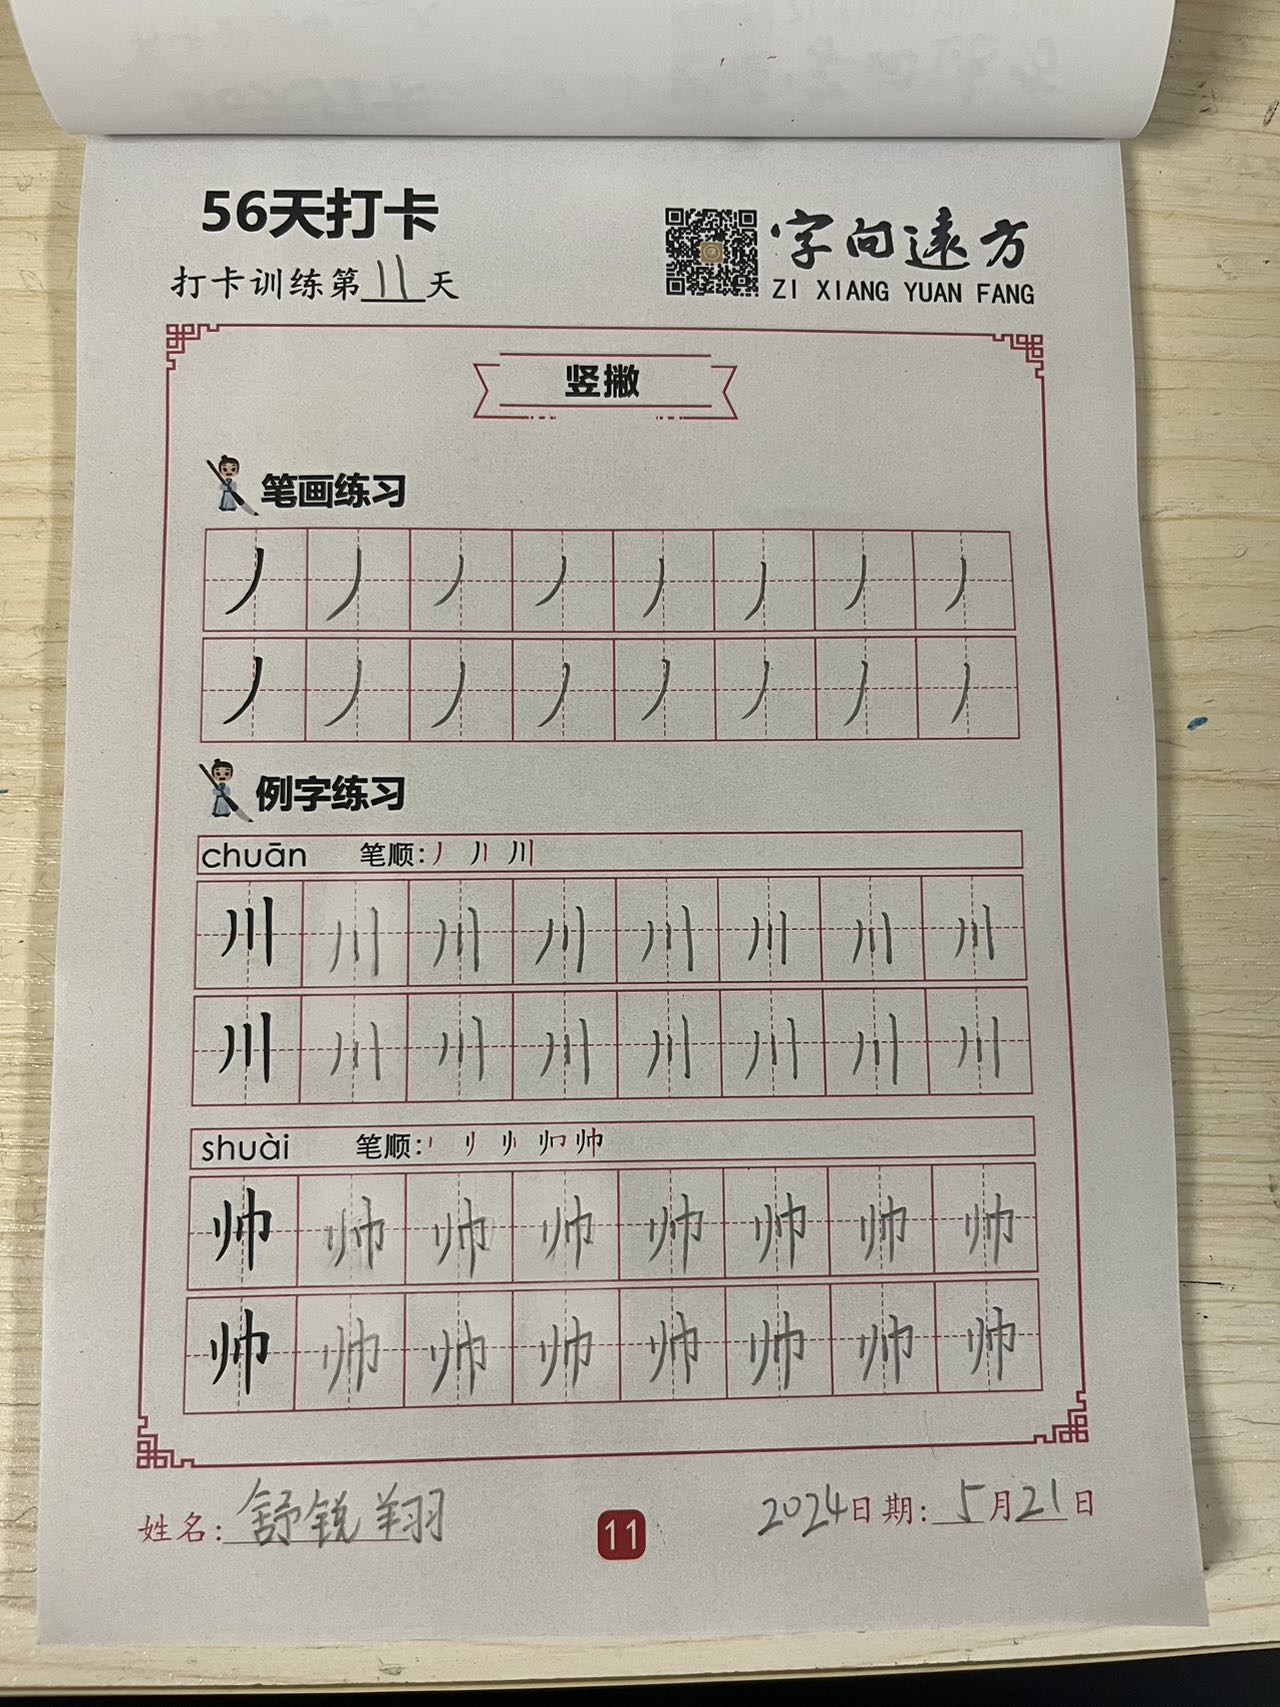 56天打卡
打卡训练第11天
字向远方
ZI XIANG YUAN FANG
竖撇
笔画练习
丿 丿 丿 丿 丿 丿 丿 丿
丿 丿 丿 丿 丿 丿 丿 丿
例字练习
chuān 笔顺: 丿 丿丨 川
川 川 川 川 川 川 川 川
川 川 川 川 川 川 川 川
shuài 笔顺:
帅 帅 帅 帅 帅 帅 帅 帅
帅 帅 帅 帅 帅 帅 帅 帅
姓名: 舒锐翔
11
2024日期: 5月21日